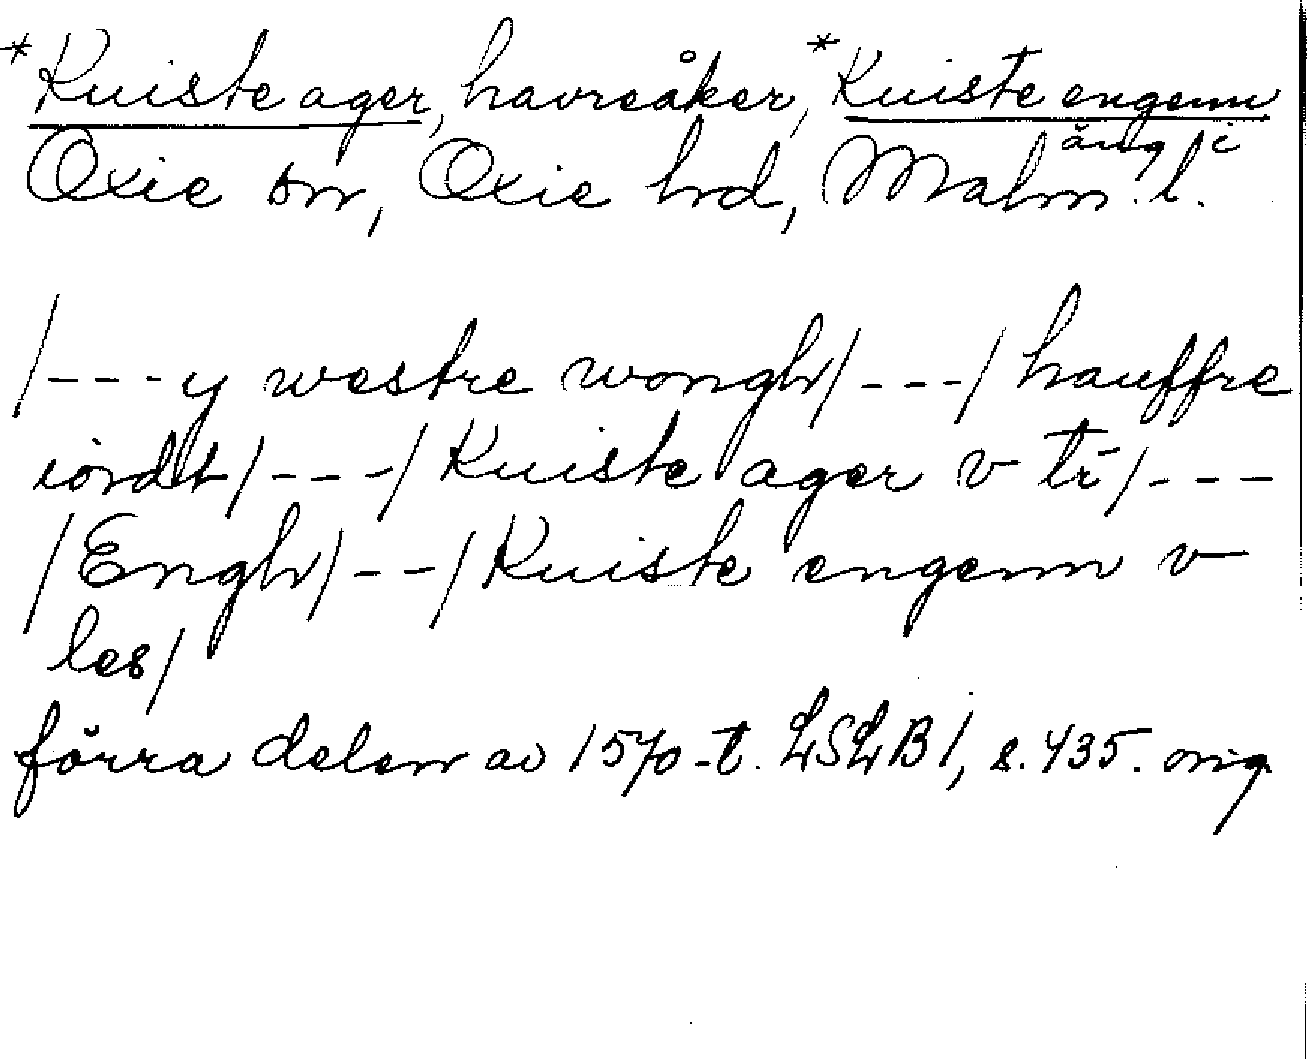 *Kuiste ager, havreåker, *Kuiste engenn
äng i
Oxie sn, Oxie hd, Malm. l.
/---y westre wongh/---/hauffre
iördt/---/Kuiste ager v tī/---
/Engh/--/Kuiste engenn v
les/
förra delen av 1570-t. LSLB1, s. 435. orig.